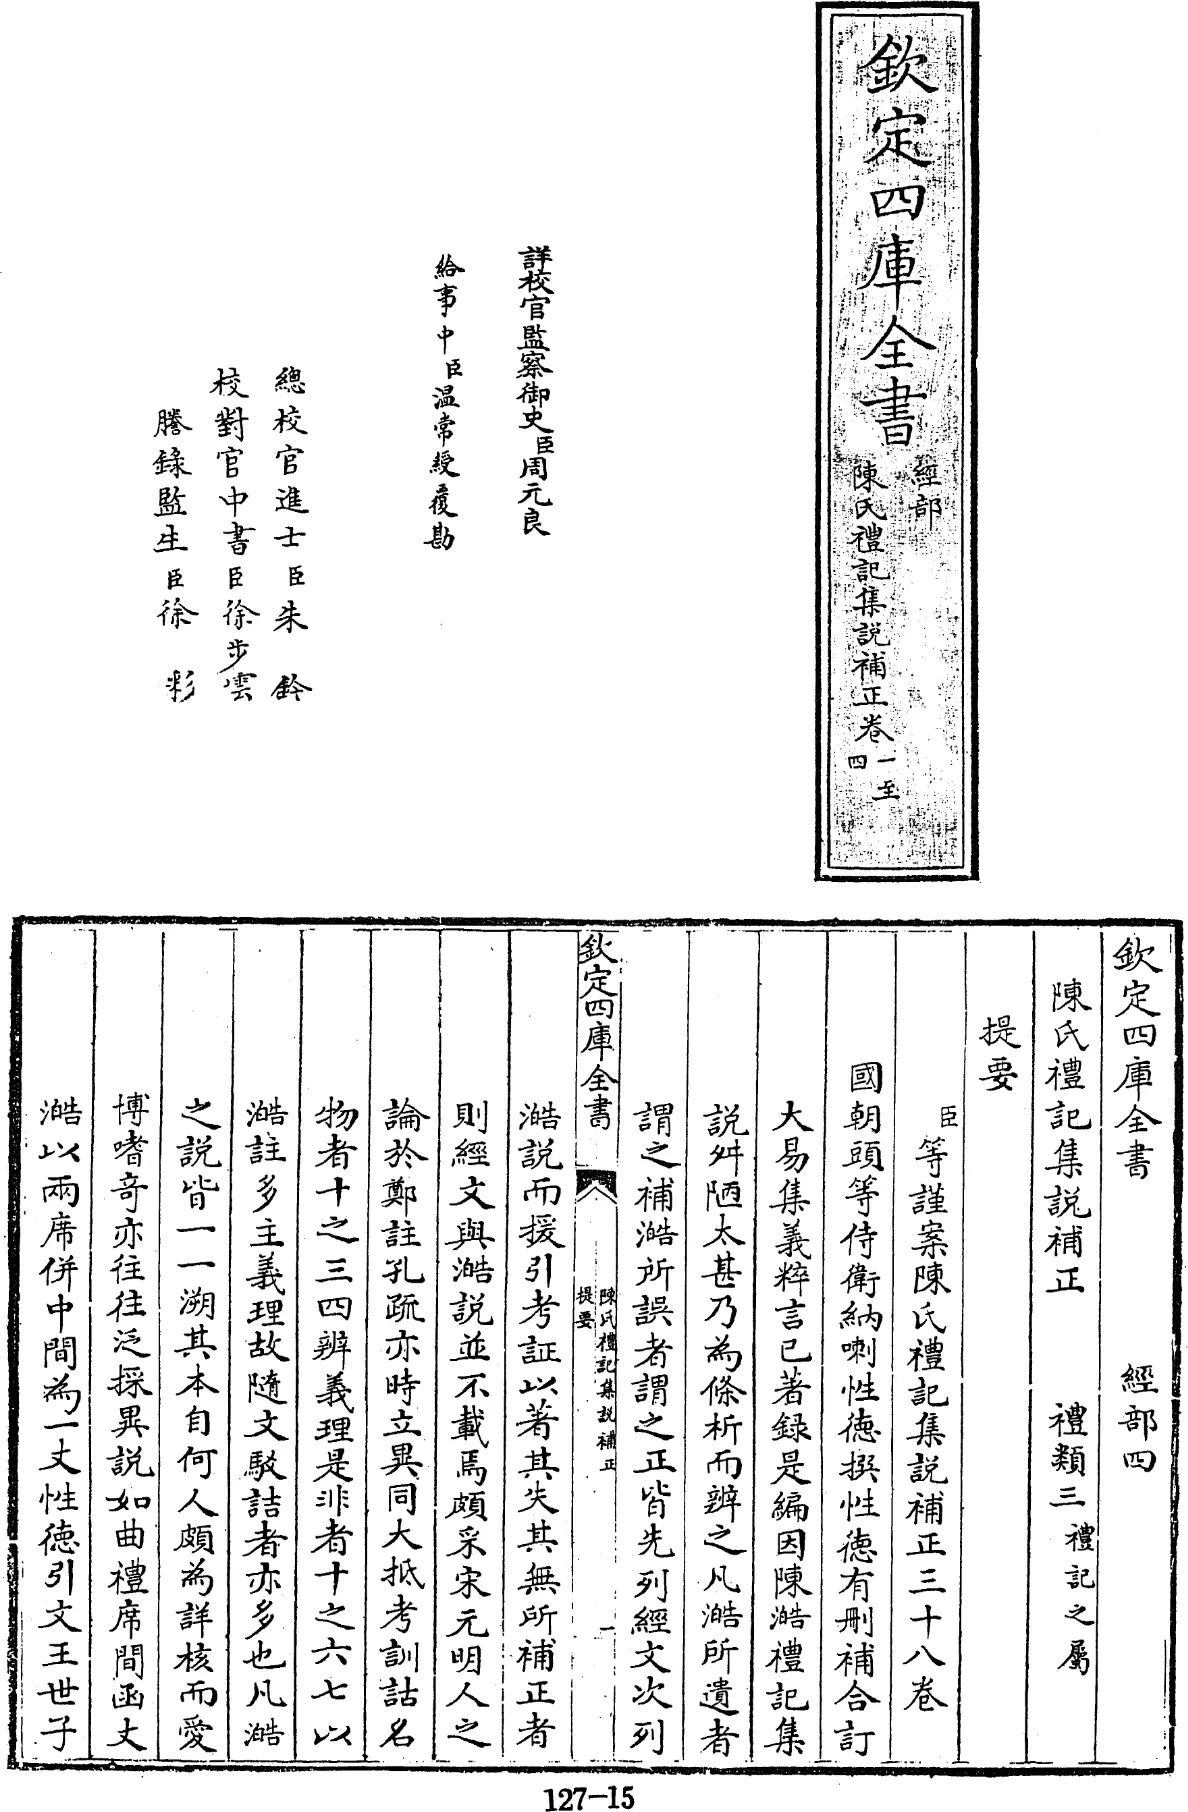 欽定四庫全書
經部
陳氏禮記集説補正卷一至四
詳校官監察御史臣周元良
給事中臣温常綬覆勘
總校官進士臣朱鈐
校對官中書臣徐步雲
謄錄監生臣徐彩
欽定四庫全書 經部四
陳氏禮記集説補正 禮類三禮記之屬
提要
臣等謹案陳氏禮記集説補正三十八卷
國朝頭等侍衛納喇性徳撰性徳有刪補合訂
大易集義粹言已著録是編因陳澔禮記集
説舛陋太甚乃為條析而辨之凡澔所遺者
謂之補澔所誤者謂之正皆先列經文次列
欽定四庫全書
陳氏禮記集説補正
提要
一
澔説而援引考証以著其失其無所補正者
則經文與澔説並不載焉頗采宋元明人之
論於鄭註孔疏亦時立異同大抵考訓詁名
物者十之三四辨義理是非者十之六七以
澔註多主義理故隨文駁詰者亦多也凡澔
之説皆一一溯其本自何人頗為詳核而愛
博嗜奇亦往往泛採異説如曲禮席間函丈
澔以兩席併中間為一丈性徳引文王世子
127-15